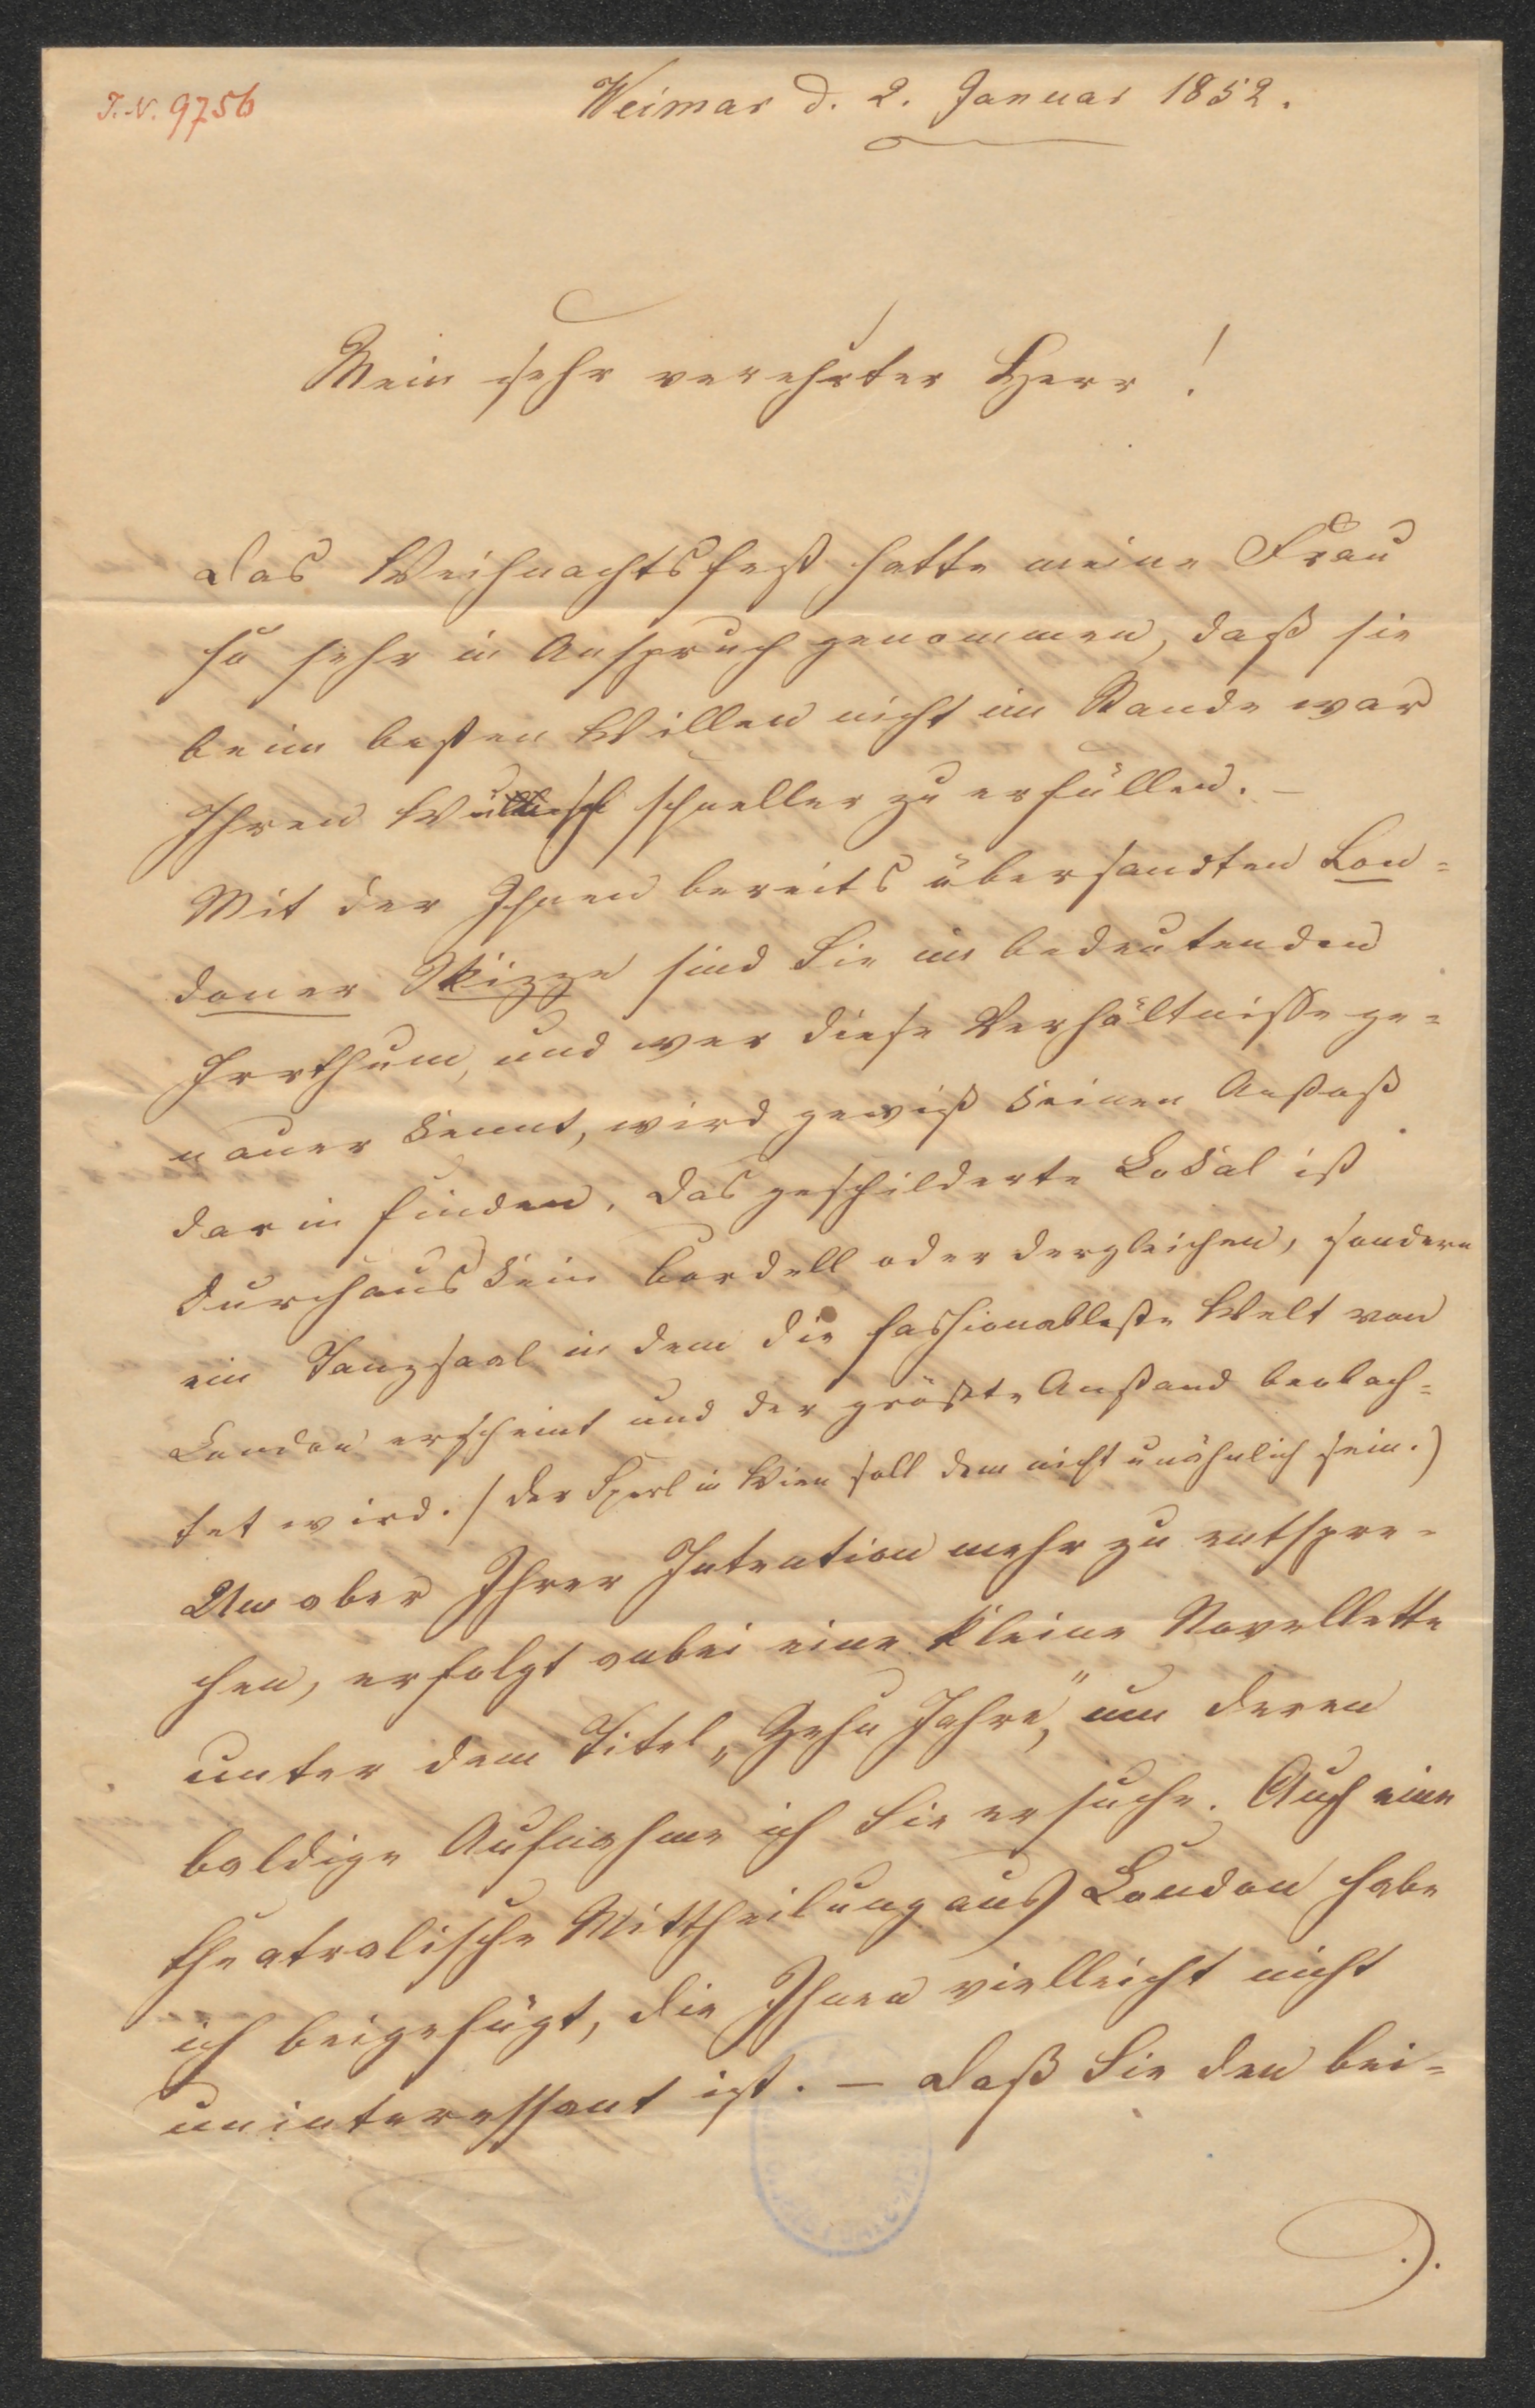 I.N. 9756
Weimar d. 2. Januar 1852.
Mein sehr verehrter Herr!
Das Weihnachtsfest hatte meine Frau
so sehr in Anspruch genommen, daß sie
beim besten Willen nicht im Stande war
Ihren Wunsch schneller zu erfüllen. –
Mit der Ihnen bereits übersandten Lon=
doner Skizze sind Sie im bedeutenden
Irrthum, und wer diese Verhältnisse ge=
nauer kennt, wird gewiß keinen Anstoß
darin finden. Das geschilderte Lokal ist
durchaus kein Bordell oder dergleichen, sondern
ein Tanzsaal in dem die fashionableste Welt von
London erscheint und der größte Anstand beobach=
tet wird. (Der Sperl in Wien soll dem nicht unähnlich sein.)
Um aber Ihrer Intention mehr zu entspre=
chen, erfolgt anbei eine kleine Novellette
unter dem Titel „Zehn Jahre", um deren
baldige Aufnahme ich Sie ersuche. Auch eine
theatralische Mittheilung aus London habe
ich beigefügt, die Ihnen vielleicht nicht
uninteressant ist. – Daß Sie den bei=